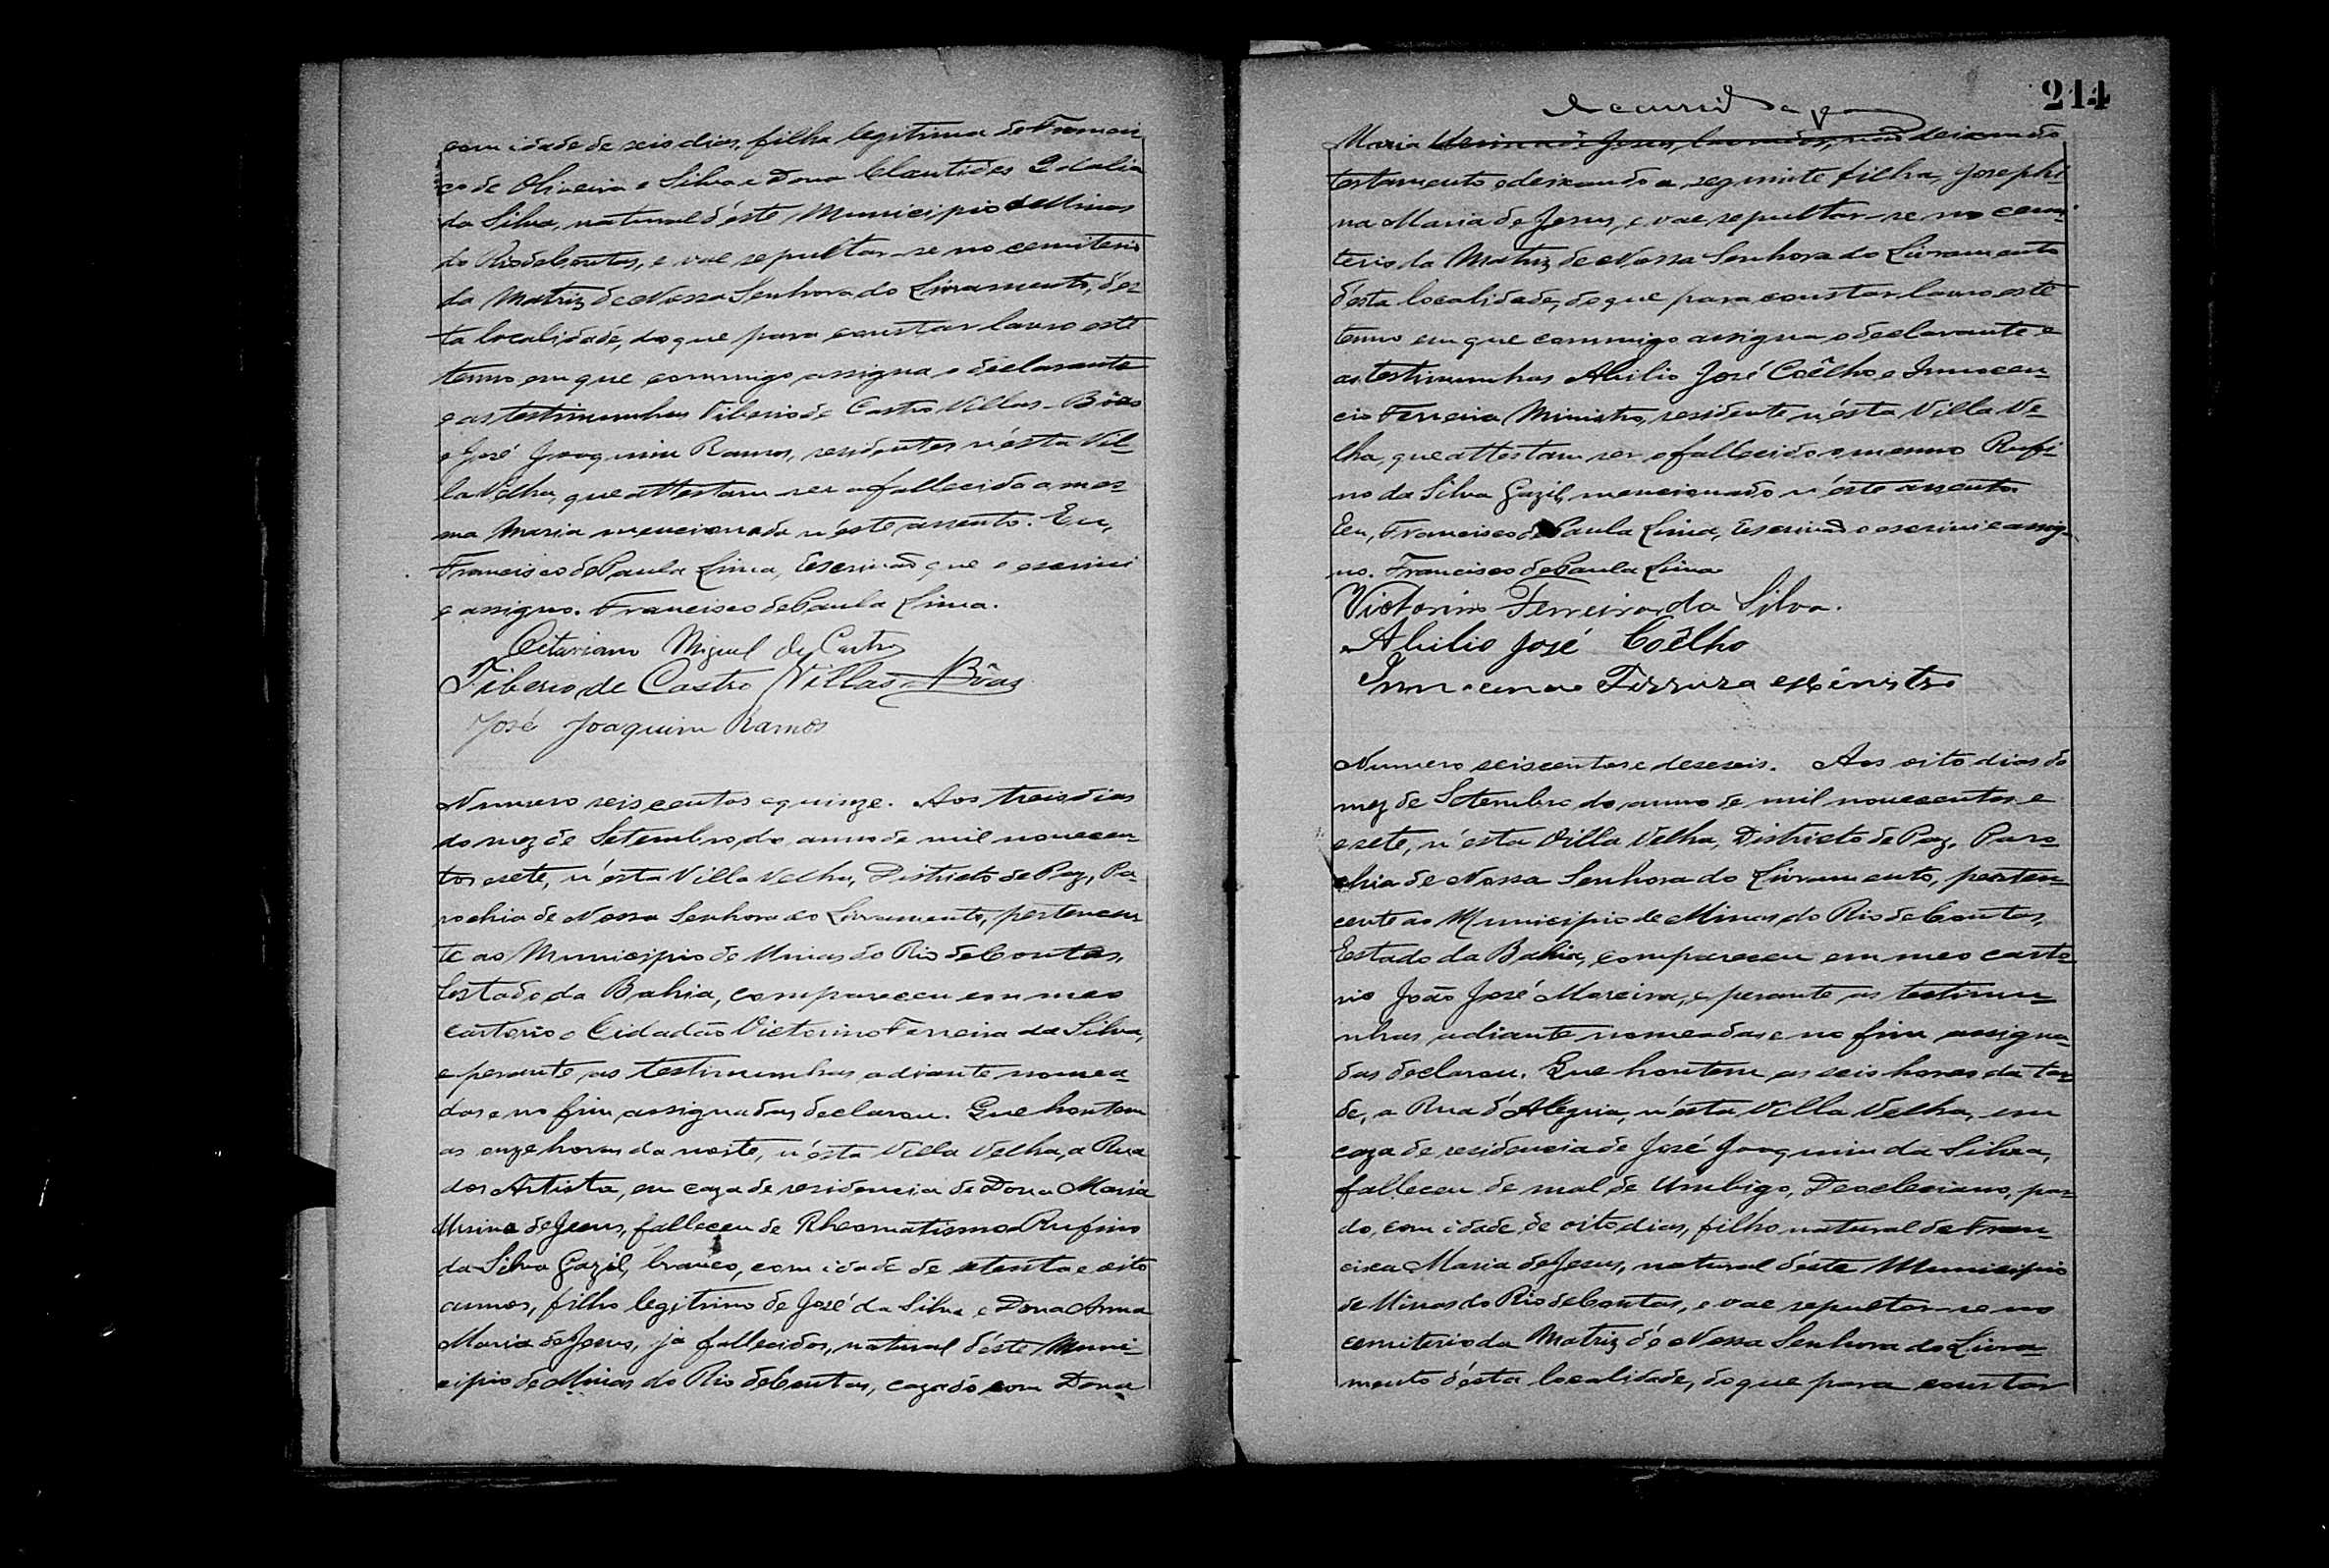 com idade de seis dias, filha legitima de Francis
co de Oliveira e Silva e Dona Clautides Idalia
da Silva, natural d'este Municipio de Minas
do Rio de Contas, e vae sepultar-se no cemiterio
da Matriz de Nossa Senhora do Livramento, d'es-
ta localidade, do que para constar lavro este
termo em que commigo assigna o declarante
e as testimunhas Tiberio de Castro Villas-Bôas
e José Joaquim Ramos, residentes n'esta Vil-
la Velha, que attestam ser a fallecida a mes-
ma Maria mencionada n'este assento. Eu,
Francisco de Paula Lima, Escrivão que o escrivi
e assigno. Francisco de Paula Lima.
Octaviano Miguel de Castro
Tiberio de Castro Villas Bôas
José Joaquim Ramos
Numero seis centos e quinze. Aos treis dias
do mez de Setembro do anno de mil novecen-
tos e sete, n'esta Villa Velha, Districto de Paz, Pa-
rochia de Nossa Senhora do Livramento, pertencen-
te ao Municipio de Minas do Rio de Contas,
Estado da Bahia, compareceu em meo
cartorio o Cidadão Victorino Ferreira da Silva,
e perante as testimunhas adiante nomea-
das e no fim assignadas declarou. Que hontem
as onze horas da noite, n'esta Villa Velha, a Rua
dos Artista, em caza de residencia de Dona Maria
Ursina de Jesus, falleceu de Rheomatismo Rufino
da Silva Gazil, branco, com idade de setenta e oito
annos, filho legitimo de José da Silva e Dona Anna
Maria de Jesus, ja fallecidos, natural d'este Muni-
cipio de Minas do Rio de Contas, cazado com Dona
214
Maria Ursina de Jesus, lavrador, não deixando
testamento e deixando a seguinte filha, Josephi-
na Maria de Jesus, e vae sepultar-se no cemi-
terio da Matriz de Nossa Senhora do Livramento
d'esta localidade, do que para constar lavro este
termo em que commigo assigna o declarante e
as testimunhas Abilio José Coêlho e Innocen-
cio Ferreira Ministro, residente n'esta Villa Ve-
lha, que attestam ser o fallecido o mesmo Rufi-
no da Silva Gazil, mencionado n'este assento.
Eu, Francisco de Paula Lima, Escrivão o escrivi e assig-
no. Francisco de Paula Lima
Victorino Ferreira da Silva.
Abilio José Coêlho
Innocencio Ferreira Ministro
Numero seiscentos e deseseis. Aos oito dias do
mez de Setembro do anno de mil novecentos e
e sete, n'esta Villa Velha, Districto de Paz, Paro-
chia de Nossa Senhora do Livramento, perten-
cente ao Municipio de Minas do Rio de Contas,
Estado da Bahia, compareceu em meo carto-
rio João José Moreira, e perante as testimu-
nhas adiante nomeadas e no fim assigna-
das declarou. Que hontem as seis horas da tar-
de, a Rua d'Alegria, n'esta Villa Velha, em
caza de residencia de José Joaquim da Silva,
falleceu de mal de Umbigo, Deocleciano, par-
do, com idade de oito dias, filho natural de Fran-
cisca Maria de Jesus, natural d'este Municipio
de Minas do Rio de Contas, e vae sepultar-se no
cemiterio da Matriz de Nossa Senhora do Livra-
mento d'esta localidade, do que para constar